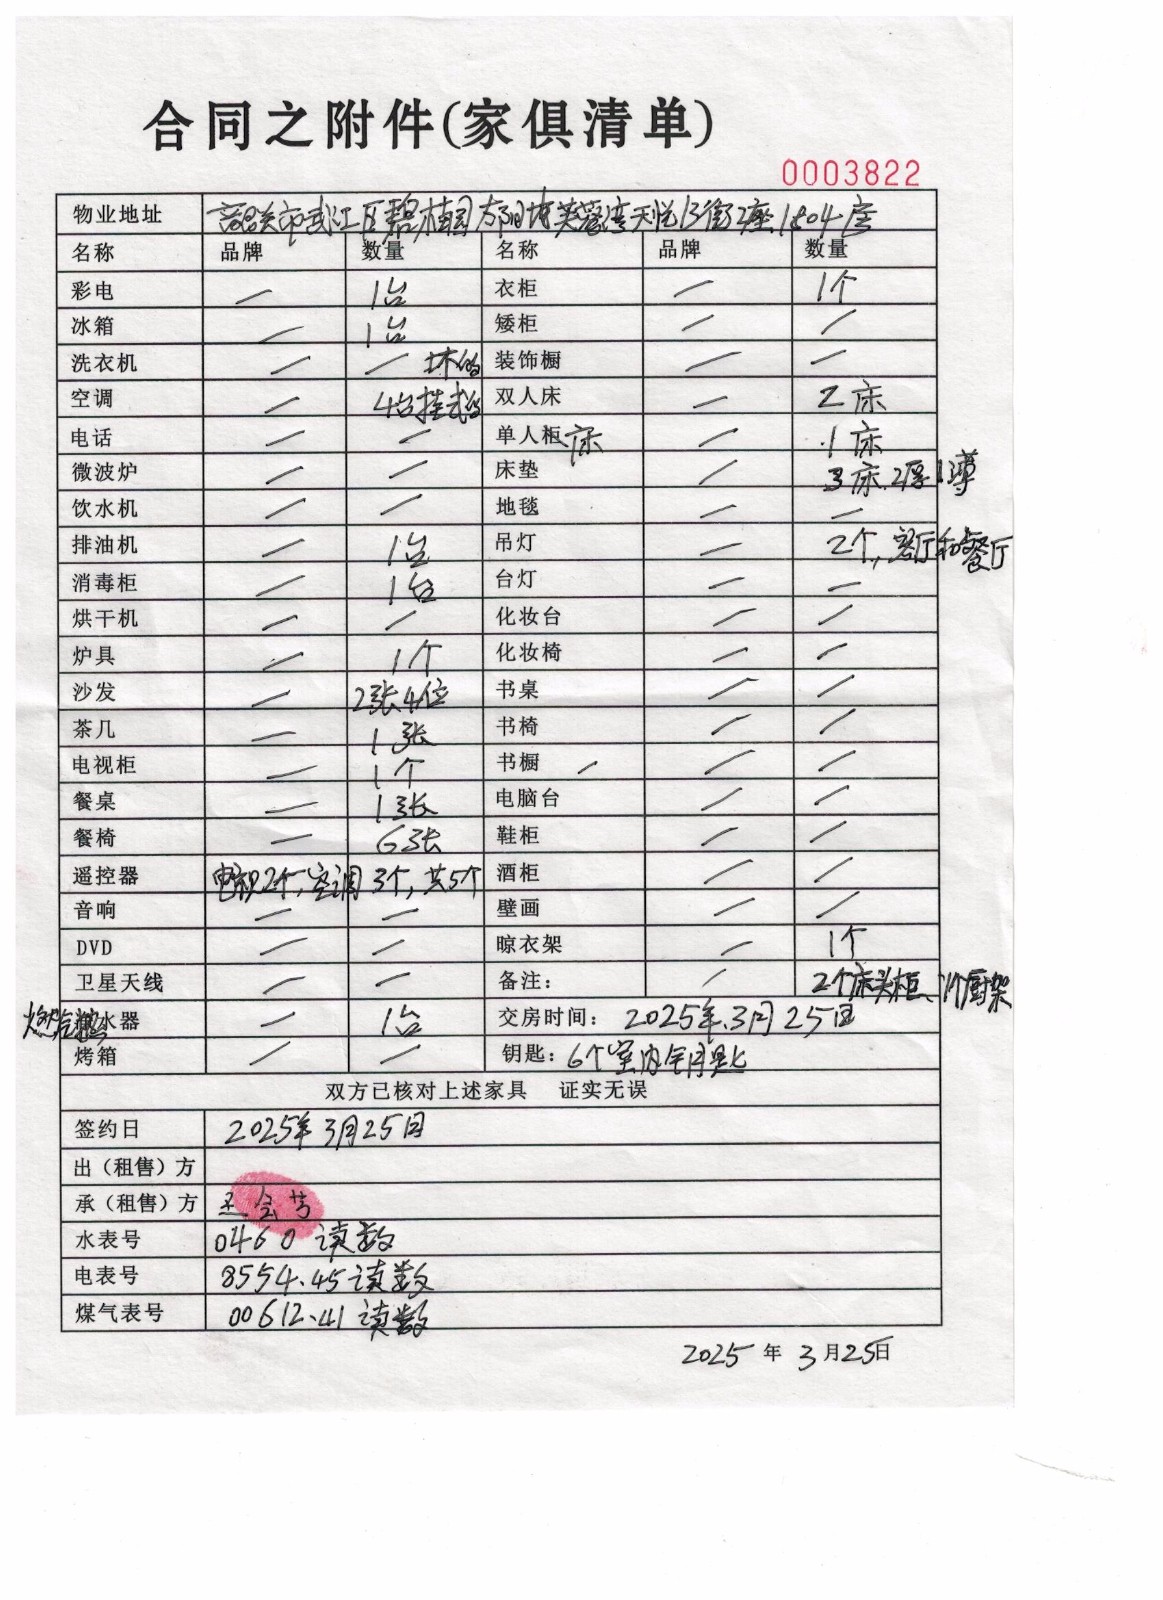 合同之附件(家俱清单)
0003822
物业地址 韶关市武江区碧桂园太阳城芙蓉湾天悦13街2座1804房
名称 品牌 数量 名称 品牌 数量
彩电 / 1台 衣柜 / 1个
冰箱 / 1台 矮柜 / /
洗衣机 / / 坏的 装饰橱 / /
空调 / 4台挂式的 双人床 / 2床
电话 / / 单人柜床 / 1床
微波炉 / / 床垫 / 3床.2厚1薄
饮水机 / / 地毯 / /
排油机 / 1台 吊灯 / 2个,客厅和餐厅
消毒柜 / 1台 台灯 / /
烘干机 / / 化妆台 / /
炉具 / 1个 化妆椅 / /
沙发 / 2张4位 书桌 / /
茶几 / 1张 书椅 / /
电视柜 / 1个 书橱 / / /
餐桌 / 1张 电脑台 / /
餐椅 / 6张 鞋柜 / /
遥控器 电视2个,空调3个,共5个 酒柜 / /
音响 / / 壁画 / /
DVD / / 晾衣架 / 1个
卫星天线 / / 备注: / 2个床头柜、1个厨架
水器 / 1台 交房时间: 2025年.3月25日
烤箱 / / 钥匙: 6个室内钥匙
双方已核对上述家具 证实无误
签约日 2025年3月25日
出（租售）方
承（租售）方
水表号 0460 读数
电表号 8554.45读数
煤气表号 00612.41 读数
2025 年 3 月25日